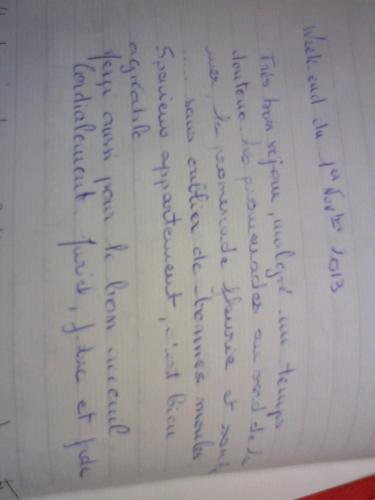 Week-end du 1er Nov bre 2013
Très bon séjour, malgré un temps
douteux. Les promenades au bord de la
mer, la promenade fleurie et
... sans oublier de bonnes moules
Spacieux appartement, c'est bien
agréable
Merci aussi pour le bon accueil
Cordialement.